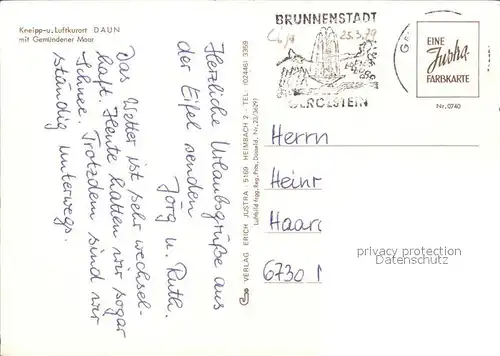 Kneipp-u. Luftkurort DAUN
mit Gemündener Maar
Herzliche Urlaubsgrüße aus
der Eifel senden
Jörg u. Ruth.
Das Wetter ist sehr wechsel-
haft. Heute hatten wir sogar
Schnee. Trotzdem sind wir
ständig unterwegs.
VERLAG ERICH JUSTRA · 5169 HEIMBACH 2 - TEL. (02446) 3359
Luftbild freig. Reg. Präs. Düsseld. Nr. 23/38293
BRUNNENSTADT
25.3.79
GEROLSTEIN
EINE
Justra
FARBKARTE
Nr. 0740
Herrn
Heinr
Haard
6730
privacy protection
Datenschutz